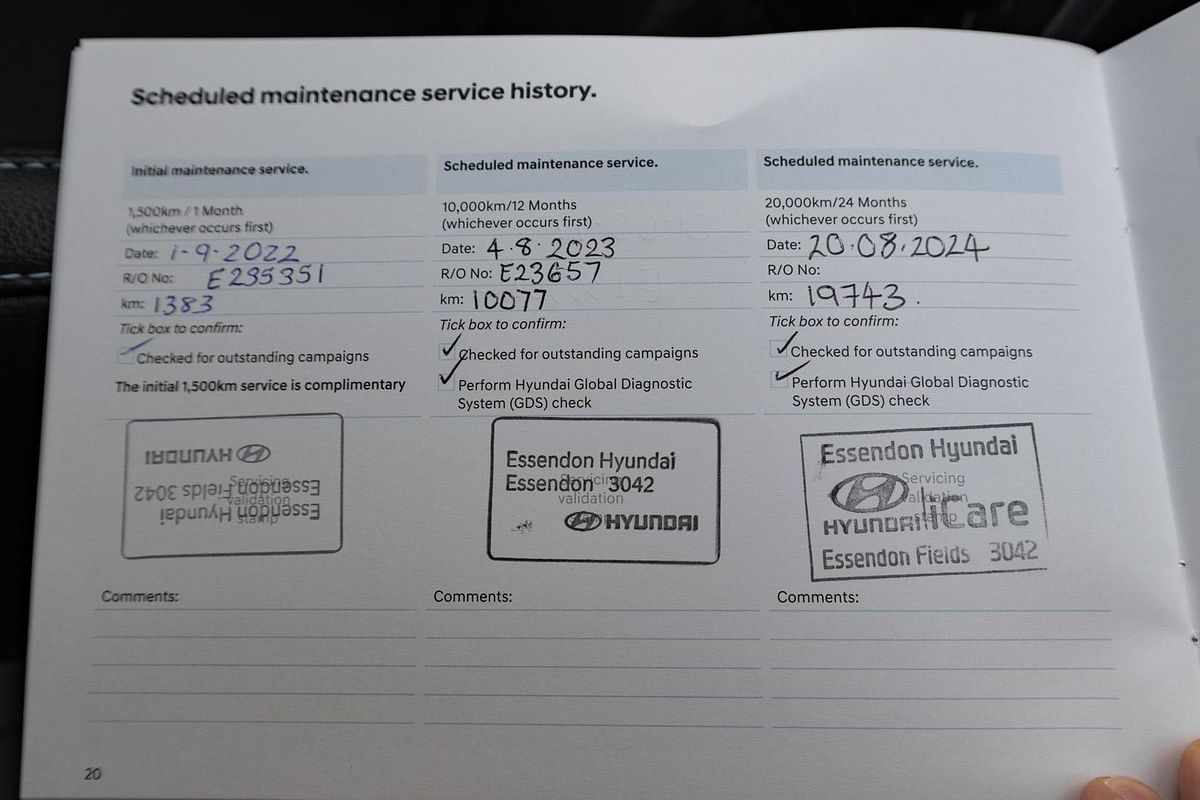 Scheduled maintenance service history.
Initial maintenance service.
1,500km / 1 Month
(whichever occurs first)
Date: 1-9-2022
R/O No: E235351
km: 1383
Tick box to confirm:
Checked for outstanding campaigns
The initial 1,500km service is complimentary
HYUNDAI
Essendon Fields 3042
Essendon Hyundai
Servicing
validation
stamp
Comments:
Scheduled maintenance service.
10,000km/12 Months
(whichever occurs first)
Date: 4.8.2023
R/O No: E23657
km: 10077
Tick box to confirm:
Checked for outstanding campaigns
Perform Hyundai Global Diagnostic
System (GDS) check
Essendon Hyundai
Essendon 3042
Servicing
validation
HYUNDAI
Comments:
Scheduled maintenance service.
20,000km/24 Months
(whichever occurs first)
Date: 20.08.2024
R/O No:
km: 19743.
Tick box to confirm:
Checked for outstanding campaigns
Perform Hyundai Global Diagnostic
System (GDS) check
Essendon Hyundai
Servicing
validation
HYUNDAI iCare
Essendon Fields 3042
Comments:
20